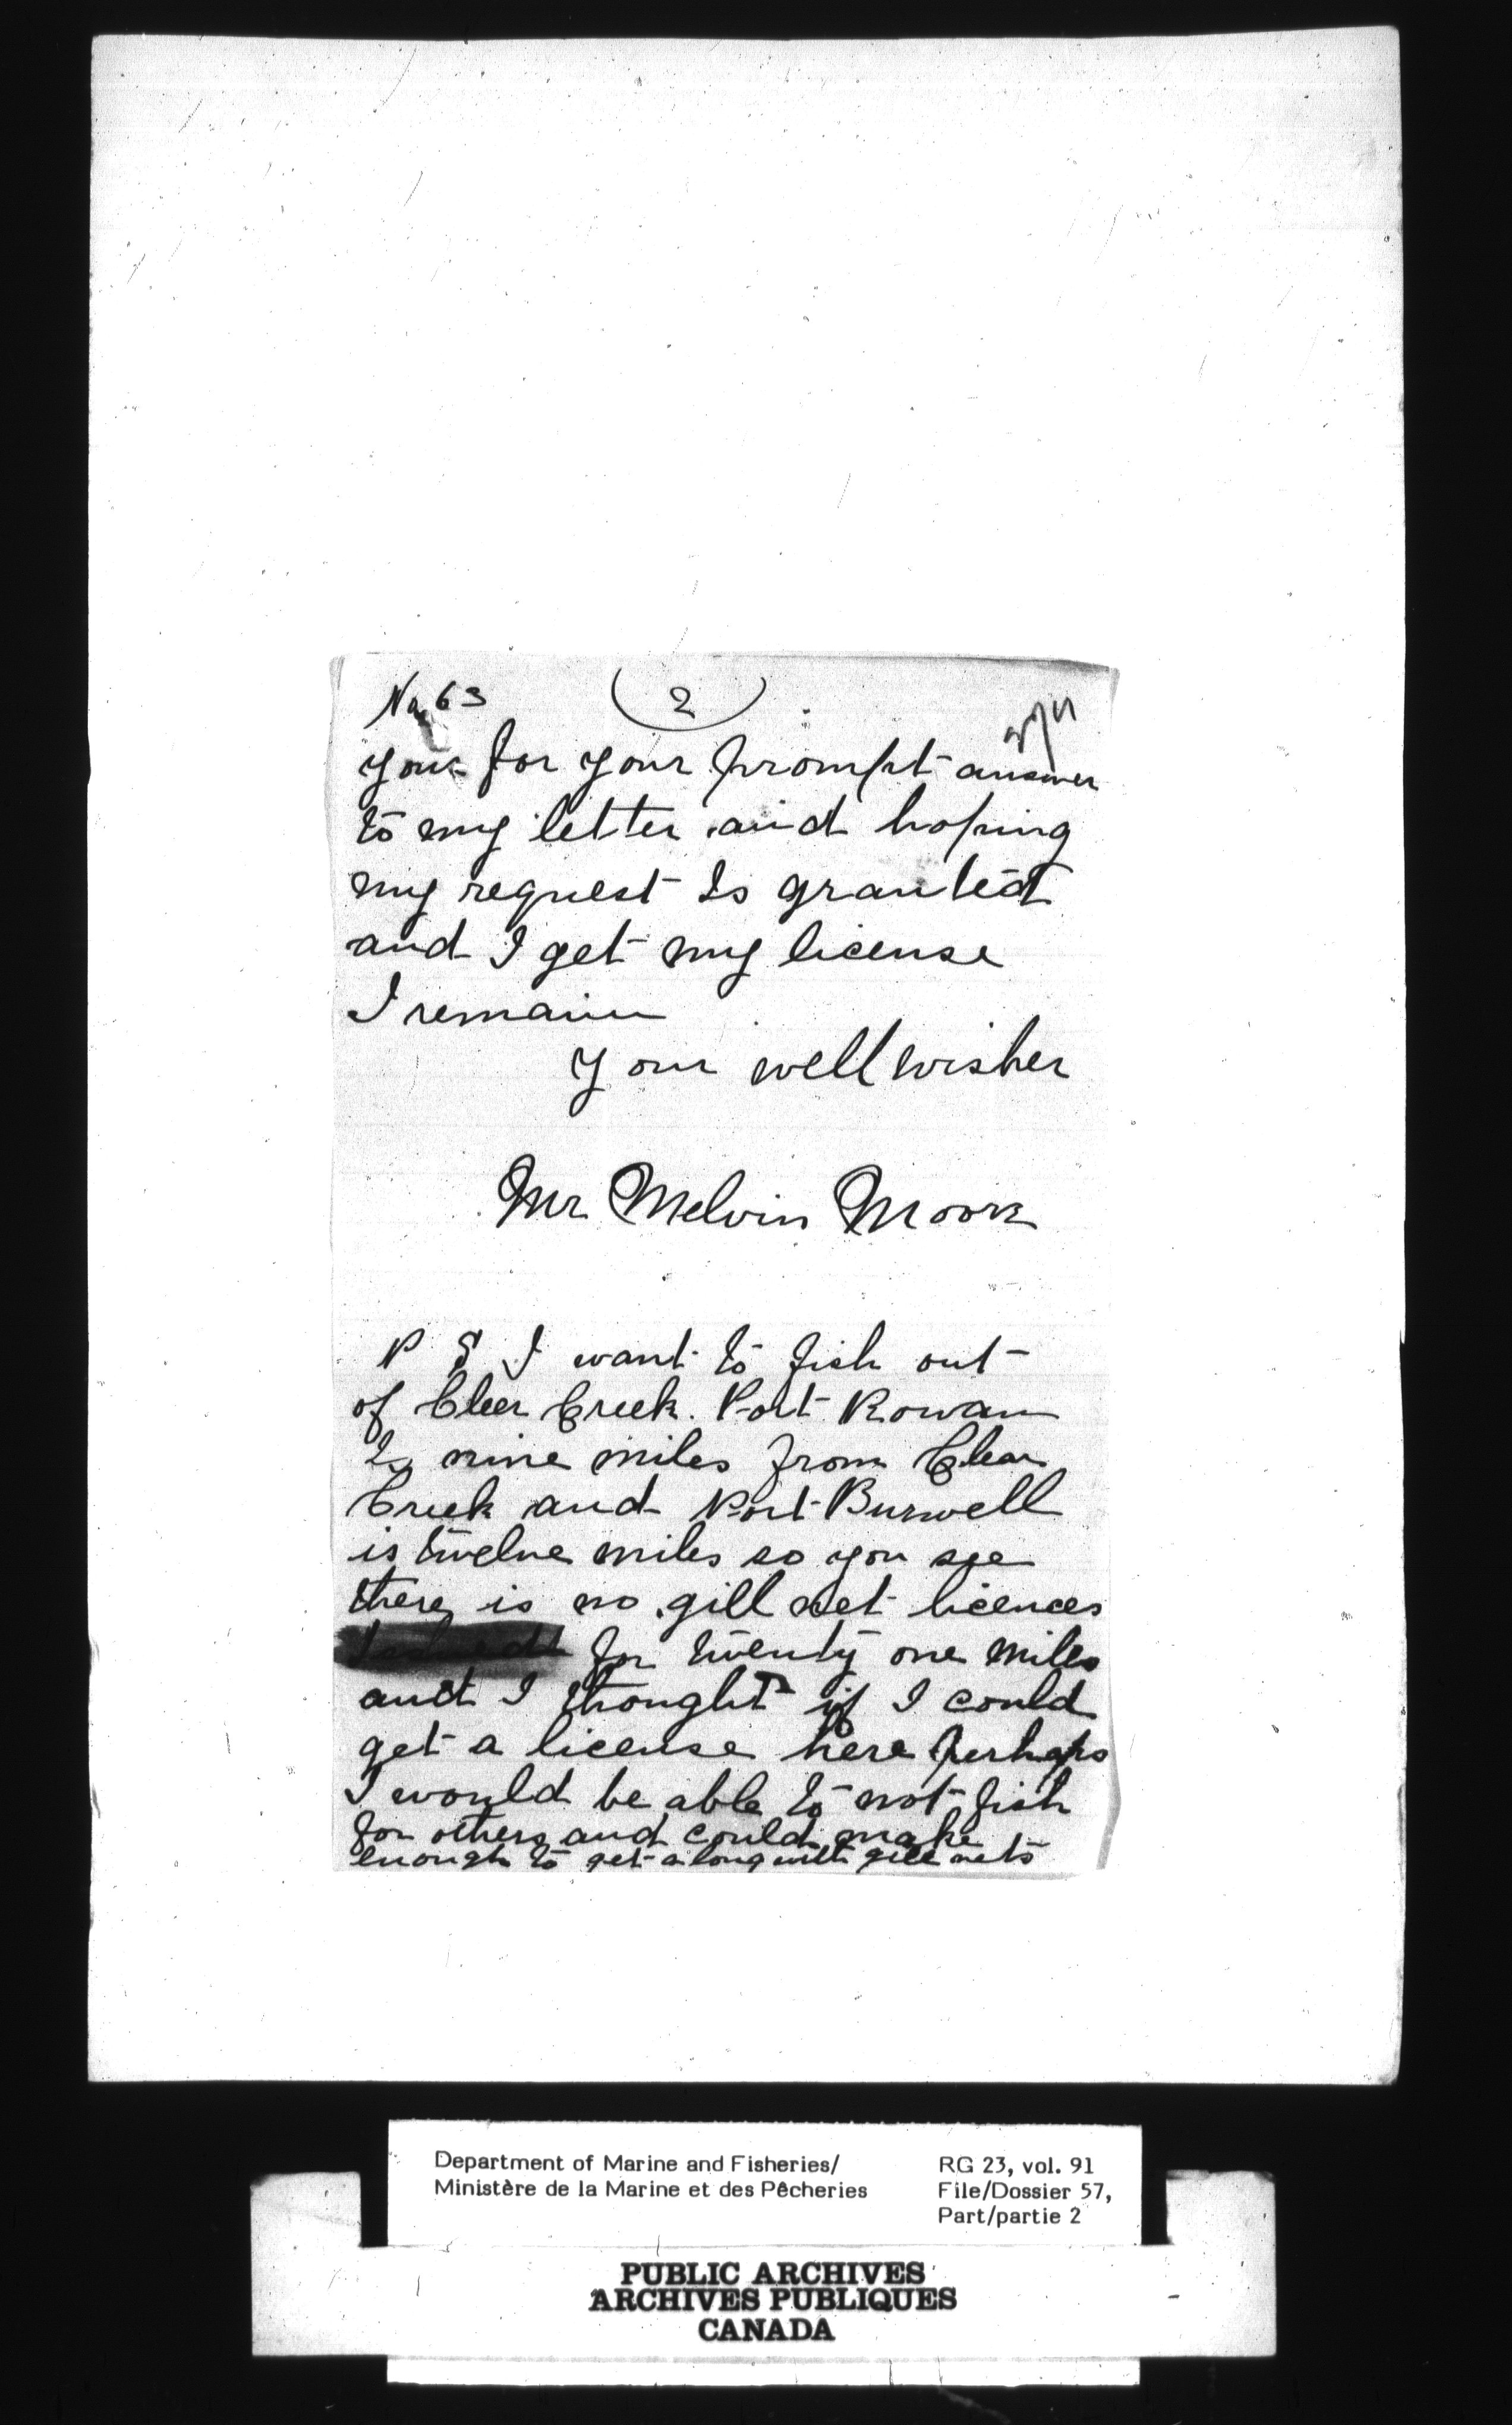 No 63 (2)
you for your prompt answer
to my letter and hoping
my request Is granted
and I get my license
I remain
your well wisher
Mr Melvin Moore
P S I want to fish out
of Cleer Creek. Port Rowan
Is nine miles from Clear
Creek and Port Burwell
is twelve miles so you see
there is no gill net licences
for twenty one miles
and I thought if I could
get a license here perhaps
I would be able to not fish
for others and could make
enough to get along with gill nets
Department of Marine and Fisheries/
Ministère de la Marine et des Pêcheries
RG 23, vol. 91
File/Dossier 57,
Part/partie 2
PUBLIC ARCHIVES
ARCHIVES PUBLIQUES
CANADA